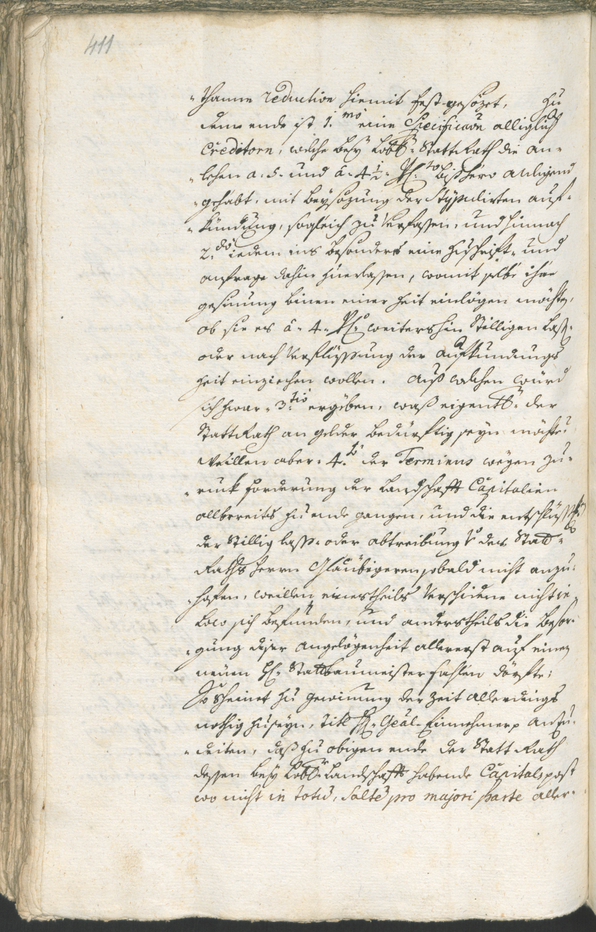 411
thanne reduction hiemit fest gesözet, zu
dem ende ist 1.mo eine Specification alliglich
Creditorn, welche bey Löbl. StattRath die an-
lehen à 5- und à 4 1/2 P.Cto bishero anligend
gehabt, mit beysözung der stipulirten auf-
kündung, sogleich zu verfassen, und hinnach
2.do iedem ins besonders eine zuschrift- und
anfrage dahin zuerlassen, womit selbe ihre
gesinnung binen einer zeit einlögen möchte,
ob sie es à 4 P.C. weitershin stilligen lass-
oder nach verfliessung der Aufkündungs
zeit einziechen wollen. Auß welchen wurd
sich zwar 3.tio ergöben, waß eigentl. der
StattRath an gelder bedürftig seyn möchte;
Weillen aber 4.to der Terminus wegen zu-
ruck forderung der Landschafts Capitalien
allbereits zu ende gangen, und die entschlüss
der stillig lass- oder abtreibung der Statt-
Raths herrn Glaubigeren sobald nicht anzu-
hofen, weillen einestheils verschidene nicht in
Loco sich befinden, und anderstheils die besor-
gung diser angelögenheit allererst auf einen
neuen H. Stattbaumeister fahlen dörfte;
So scheinet zu gewinung der Zeit allerdings
nöthig zuseyn, titl. H. Gral Einnehmer anzu-
deiten, daß zu obigen ende der Statt Rath
dessen bey Löbl. Landschaft habende Capitalspost
wo nicht in toto, salte pro majori parte aller-